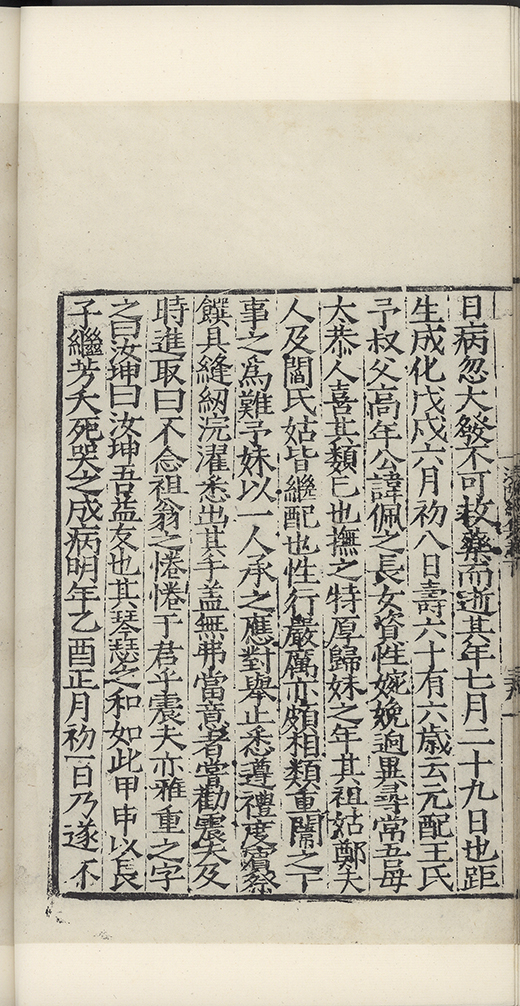 日病忽大發不可救藥而逝其年七月二十九日也距
生成化戊戌六月初八日壽六十有六歲云元配王氏
予叔父高年公諱佩之長女資性婉娩逈異尋常吾母
太恭人喜其類已也撫之特厚歸妹之年其祖姑鄭夫
人及閻氏姑皆繼配也性行嚴厲亦頗相類重闈之下
事之爲難予妹以一人承之應對舉止悉遵禮度賓祭
饌具縫紉浣濯悉出其手盖無弗當意者嘗勸震夫及
時進取曰不念祖翁之惓惓于君乎震夫亦雅重之字
之曰汝坤曰汝坤吾益友也其琴瑟之和如此甲申以長
子繼芳夭死哭之成病明年乙酉正月初一日乃遂不